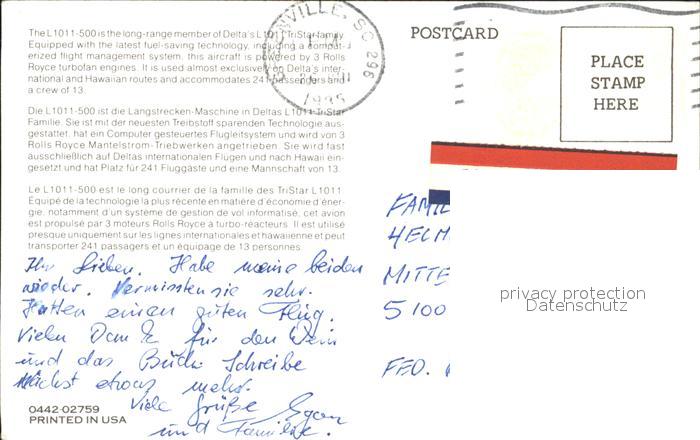 The L1011-500 is the long-range member of Delta's L1011 TriStar family.
Equipped with the latest fuel-saving technology, including a computerized flight management system, this aircraft is powered by 3 Rolls
Royce turbofan engines. It is used almost exclusively on Delta's international and Hawaiian routes and accommodates 241 passengers and
a crew of 13.
Die L1011-500 ist die Langstrecken-Maschine in Deltas L1011 TriStar
Familie. Sie ist mit der neuesten Treibstoff sparenden Technologie ausgestattet, hat ein Computer gesteuertes Flugleitsystem und wird von 3
Rolls Royce Mantelstrom-Triebwerken angetrieben. Sie wird fast
ausschließlich auf Deltas internationalen Flugen und nach Hawaii eingesetzt und hat Platz für 241 Fluggäste und eine Mannschaft von 13.
Le L1011-500 est le long courrier de la famille des TriStar L1011
Equipé de la technologie la plus récente en matière d'économie d'énergie, notamment d'un système de gestion de vol informatisé, cet avion
est propulsé par 3 moteurs Rolls Royce à turbo-réacteurs. Il est utilisé
presque uniquement sur les lignes internationales et hawaïenne et peut
transporter 241 passagers et un équipage de 13 personnes.
Ihr Lieben. Habe meine beiden
wieder. Vermissten sie sehr.
Hatten einen guten Flug.
Vielen Dank für den Wein
und das Buch. Schreibe
nächst etwas mehr.
Viele Grüße
und Familie.
0442-02759
PRINTED IN USA
SC 296
1985
POSTCARD
PLACE
STAMP
HERE
FAMIL
HELM
MITTE
5100
FED.
privacy protection
Datenschutz